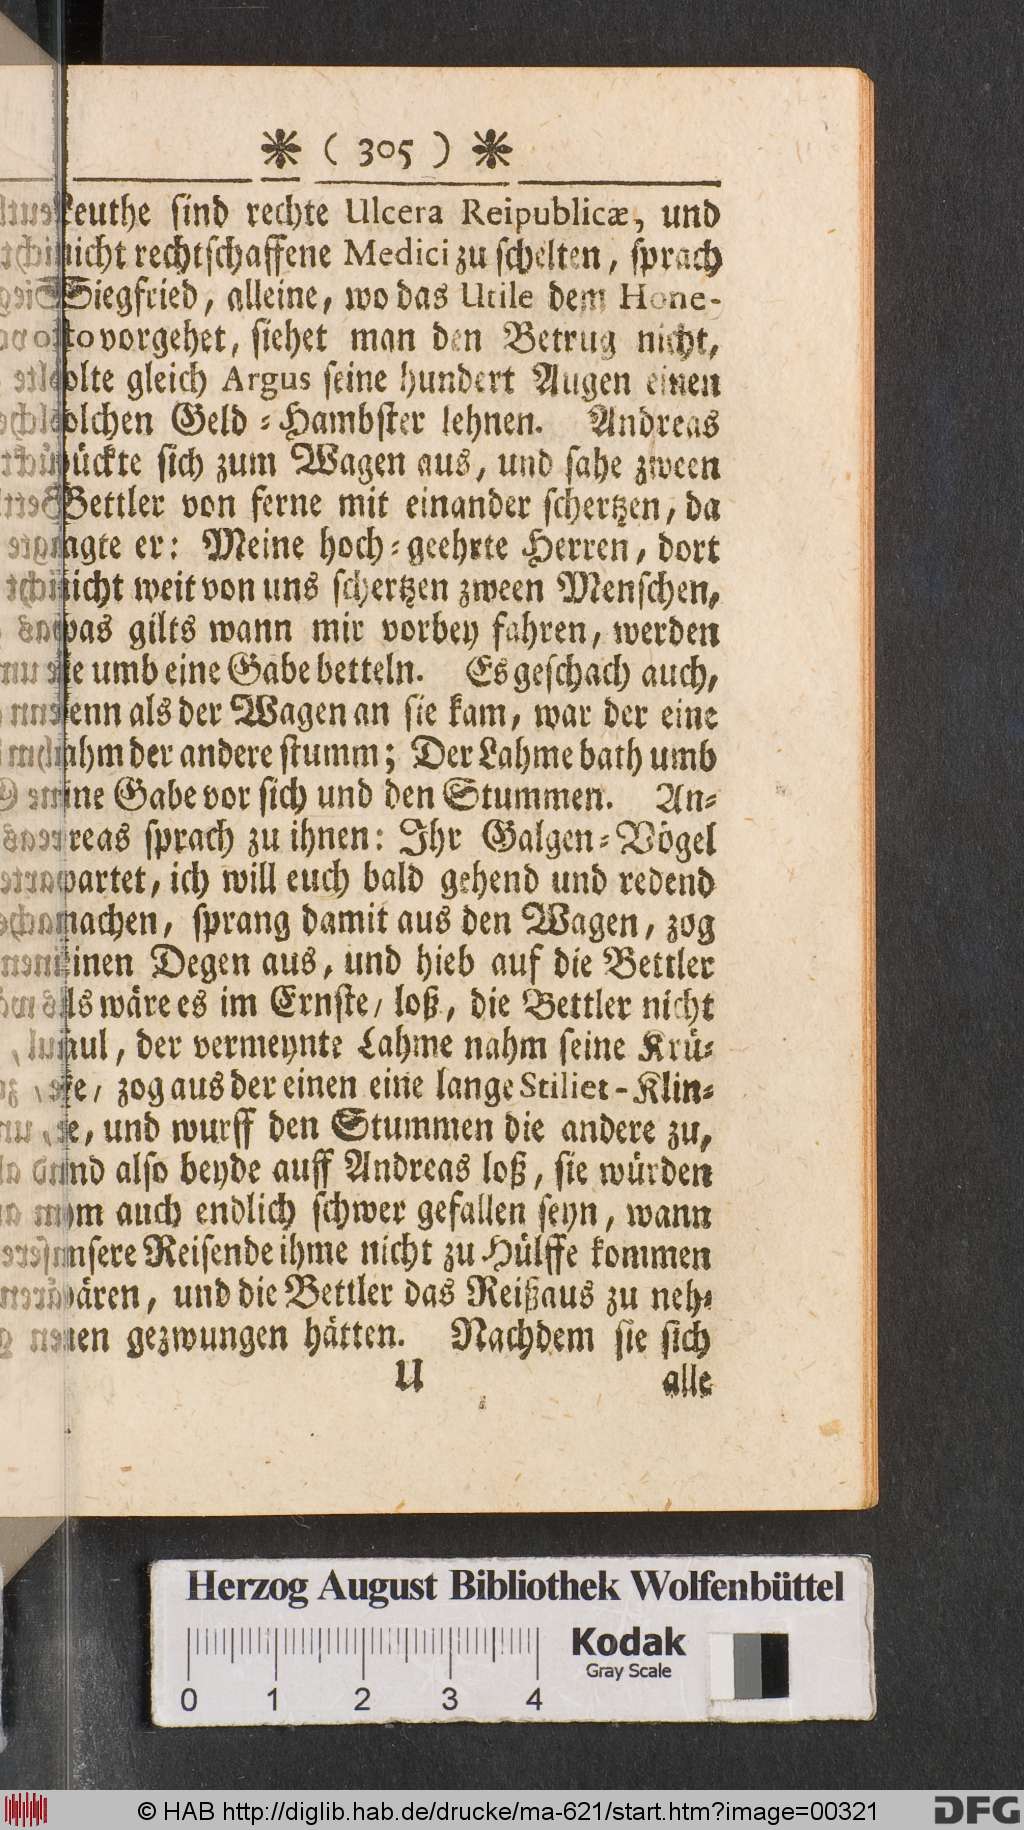 * ( 305 ) *
Leuthe sind rechte Ulcera Reipublicæ, und
nicht rechtschaffene Medici zu schelten, sprach
Siegfried, alleine, wo das Utile dem Hone-
sto vorgehet, siehet man den Betrug nicht,
solte gleich Argus seine hundert Augen einen
solchen Geld-Hambster lehnen. Andreas
bückte sich zum Wagen aus, und sahe zween
Bettler von ferne mit einander schertzen, da
sagte er: Meine hoch-geehrte Herren, dort
nicht weit von uns schertzen zween Menschen,
was gilts wann mir vorbey fahren, werden
sie umb eine Gabe betteln. Es geschach auch,
denn als der Wagen an sie kam, war der eine
lahm der andere stumm; Der Lahme bath umb
eine Gabe vor sich und den Stummen. An-
dreas sprach zu ihnen: Ihr Galgen-Vögel
wartet, ich will euch bald gehend und redend
machen, sprang damit aus den Wagen, zog
seinen Degen aus, und hieb auf die Bettler
als wäre es im Ernste/ loß, die Bettler nicht
faul, der vermeynte Lahme nahm seine Krü-
cke/ zog aus der einen eine lange Stiliet-Klin-
ge, und wurff den Stummen die andere zu,
und also beyde auff Andreas loß, sie würden
ihm auch endlich schwer gefallen seyn, wann
unsere Reisende ihme nicht zu Hülffe kommen
wären, und die Bettler das Reißaus zu neh-
men gezwungen hätten. Nachdem sie sich
U alle
Herzog August Bibliothek Wolfenbüttel
Kodak
Gray Scale
0 1 2 3 4
© HAB http://diglib.hab.de/drucke/ma-621/start.htm?image=00321
DFG